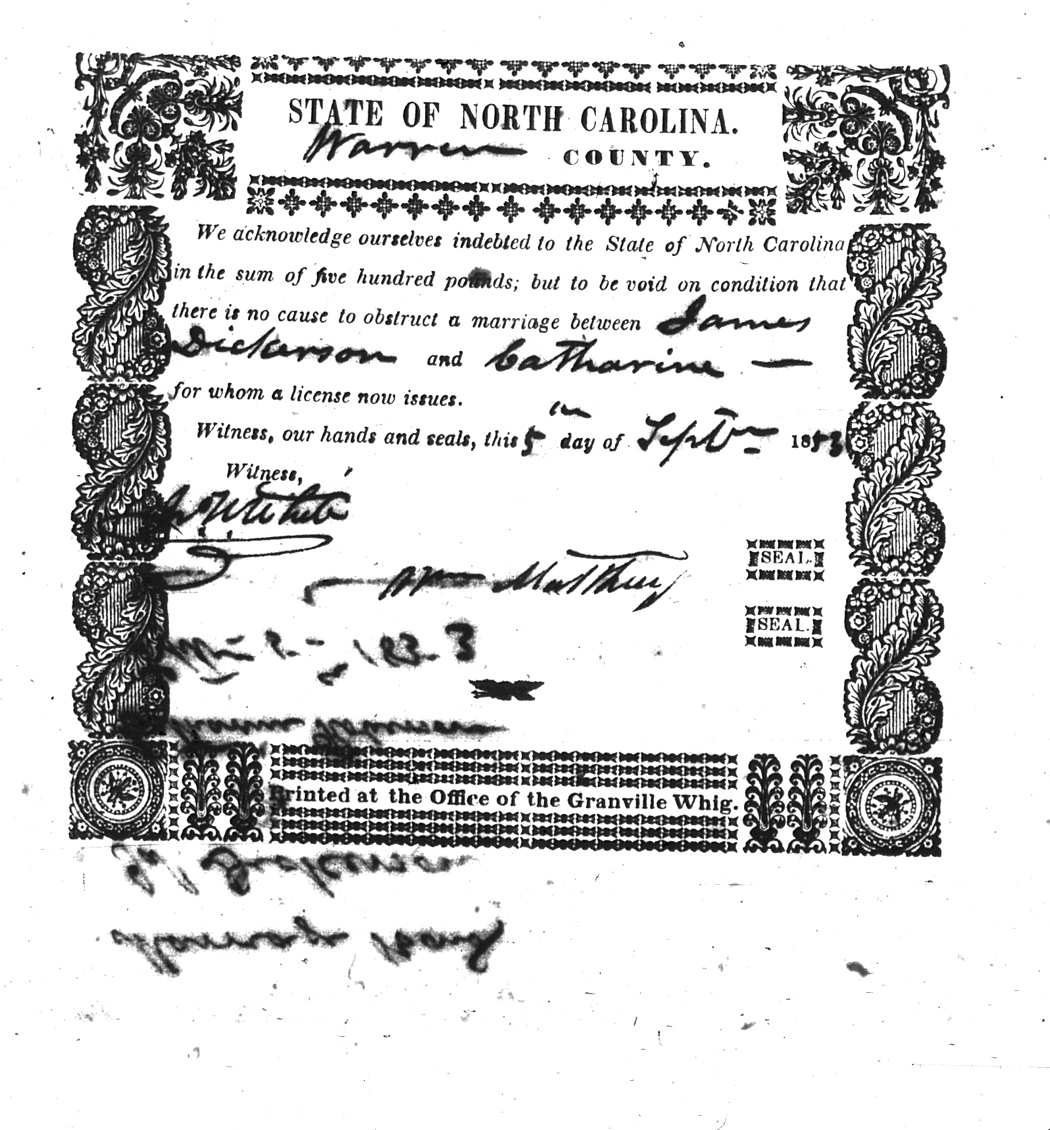 STATE OF NORTH CAROLINA.
Warren COUNTY.
We acknowledge ourselves indebted to the State of North Carolina
in the sum of five hundred pounds; but to be void on condition that
there is no cause to obstruct a marriage between James
Dickerson and Catharine —
for whom a license now issues.
Witness, our hands and seals, this 5th day of Septbr 1853
Witness,
White
SEAL.
Wm Matthews
SEAL.
5 1853
Printed at the Office of the Granville Whig.
Dickerson
Marriage Bond